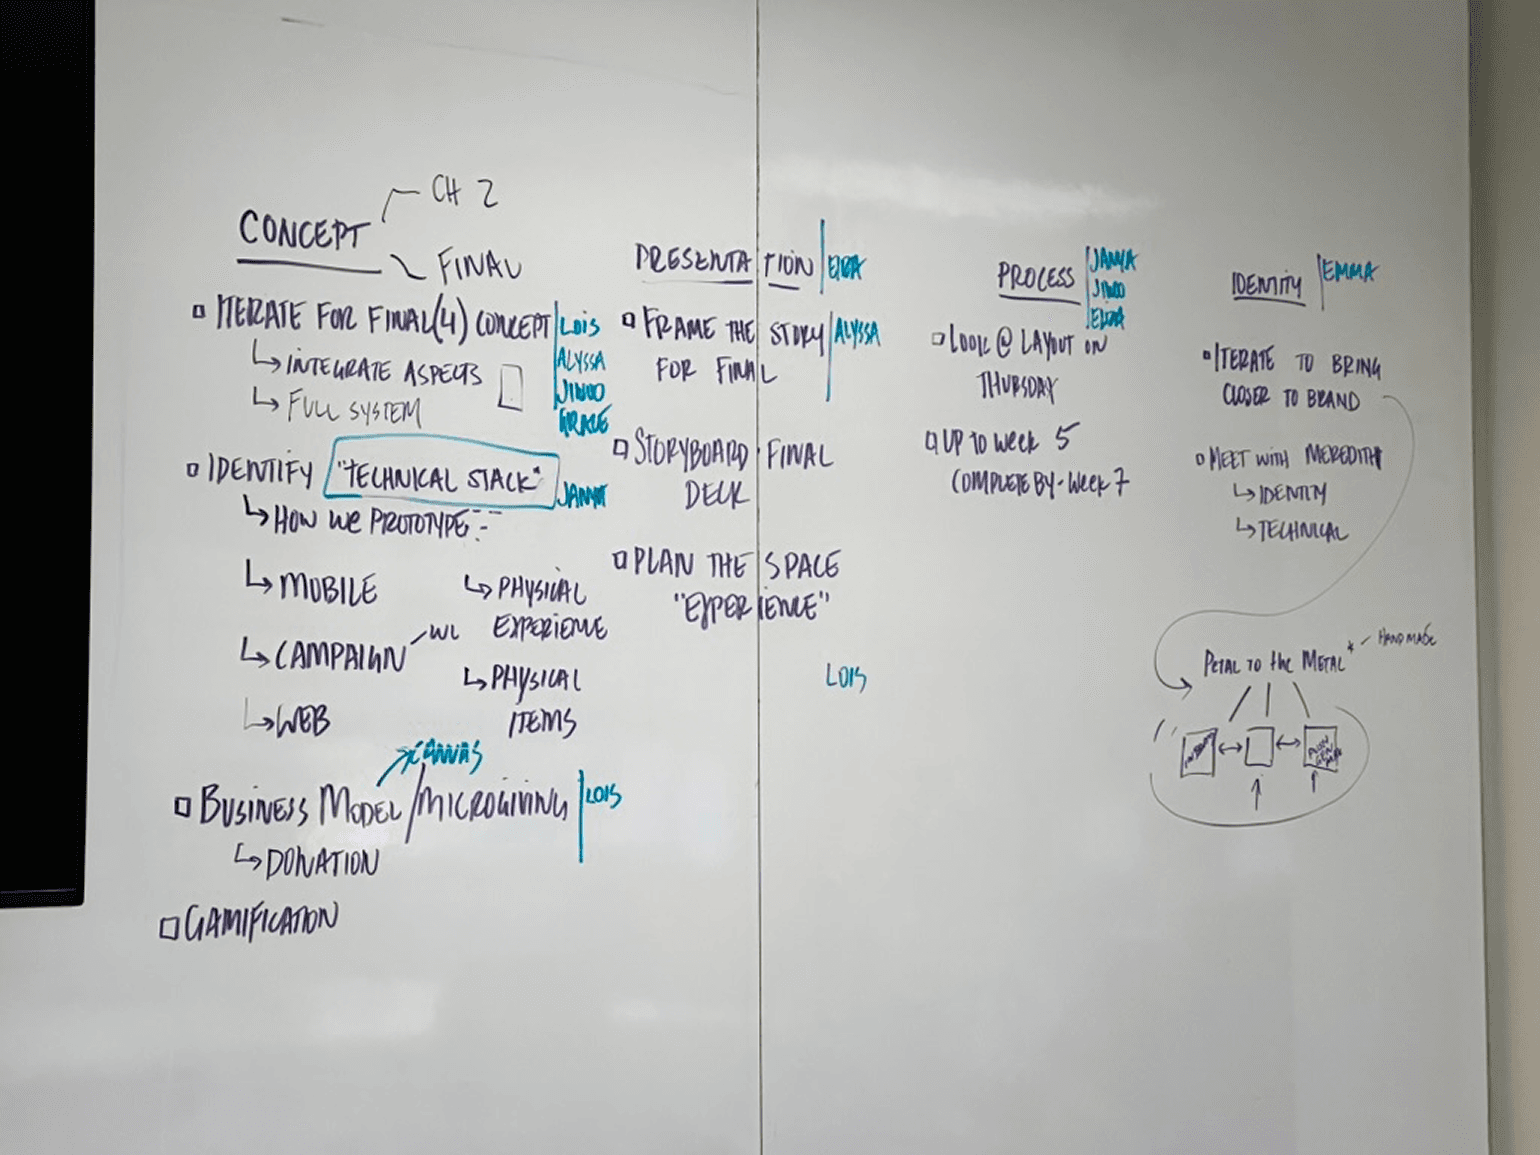 CONCEPT
CH 2
FINAL
ITERATE FOR FINAL(4) CONCEPT
LOIS
ALYSSA
JINDO
GRACE
INTEGRATE ASPECTS
FULL SYSTEM
IDENTIFY "TECHNICAL STACK"
JANYA
HOW WE PROTOTYPE
MOBILE
CAMPAIGN
WEB
PHYSICAL
EXPERIENCE
PHYSICAL
ITEMS
CANVAS
BUSINESS MODEL/MICROGIVING
LOIS
DONATION
GAMIFICATION
PRESENTATION
FRAME THE STORY
FOR FINAL
ALYSSA
STORYBOARD FINAL
DECK
PLAN THE SPACE
"EXPERIENCE"
LOIS
PROCESS
JANYA
JINDO
LOOK @ LAYOUT ON
THURSDAY
UP TO WEEK 5
COMPLETE BY - WEEK 7
IDENTITY
EMMA
ITERATE TO BRING
CLOSER TO BRAND
MEET WITH MEREDITH
IDENTITY
TECHNICAL
PETAL TO THE METAL*
HANDMADE